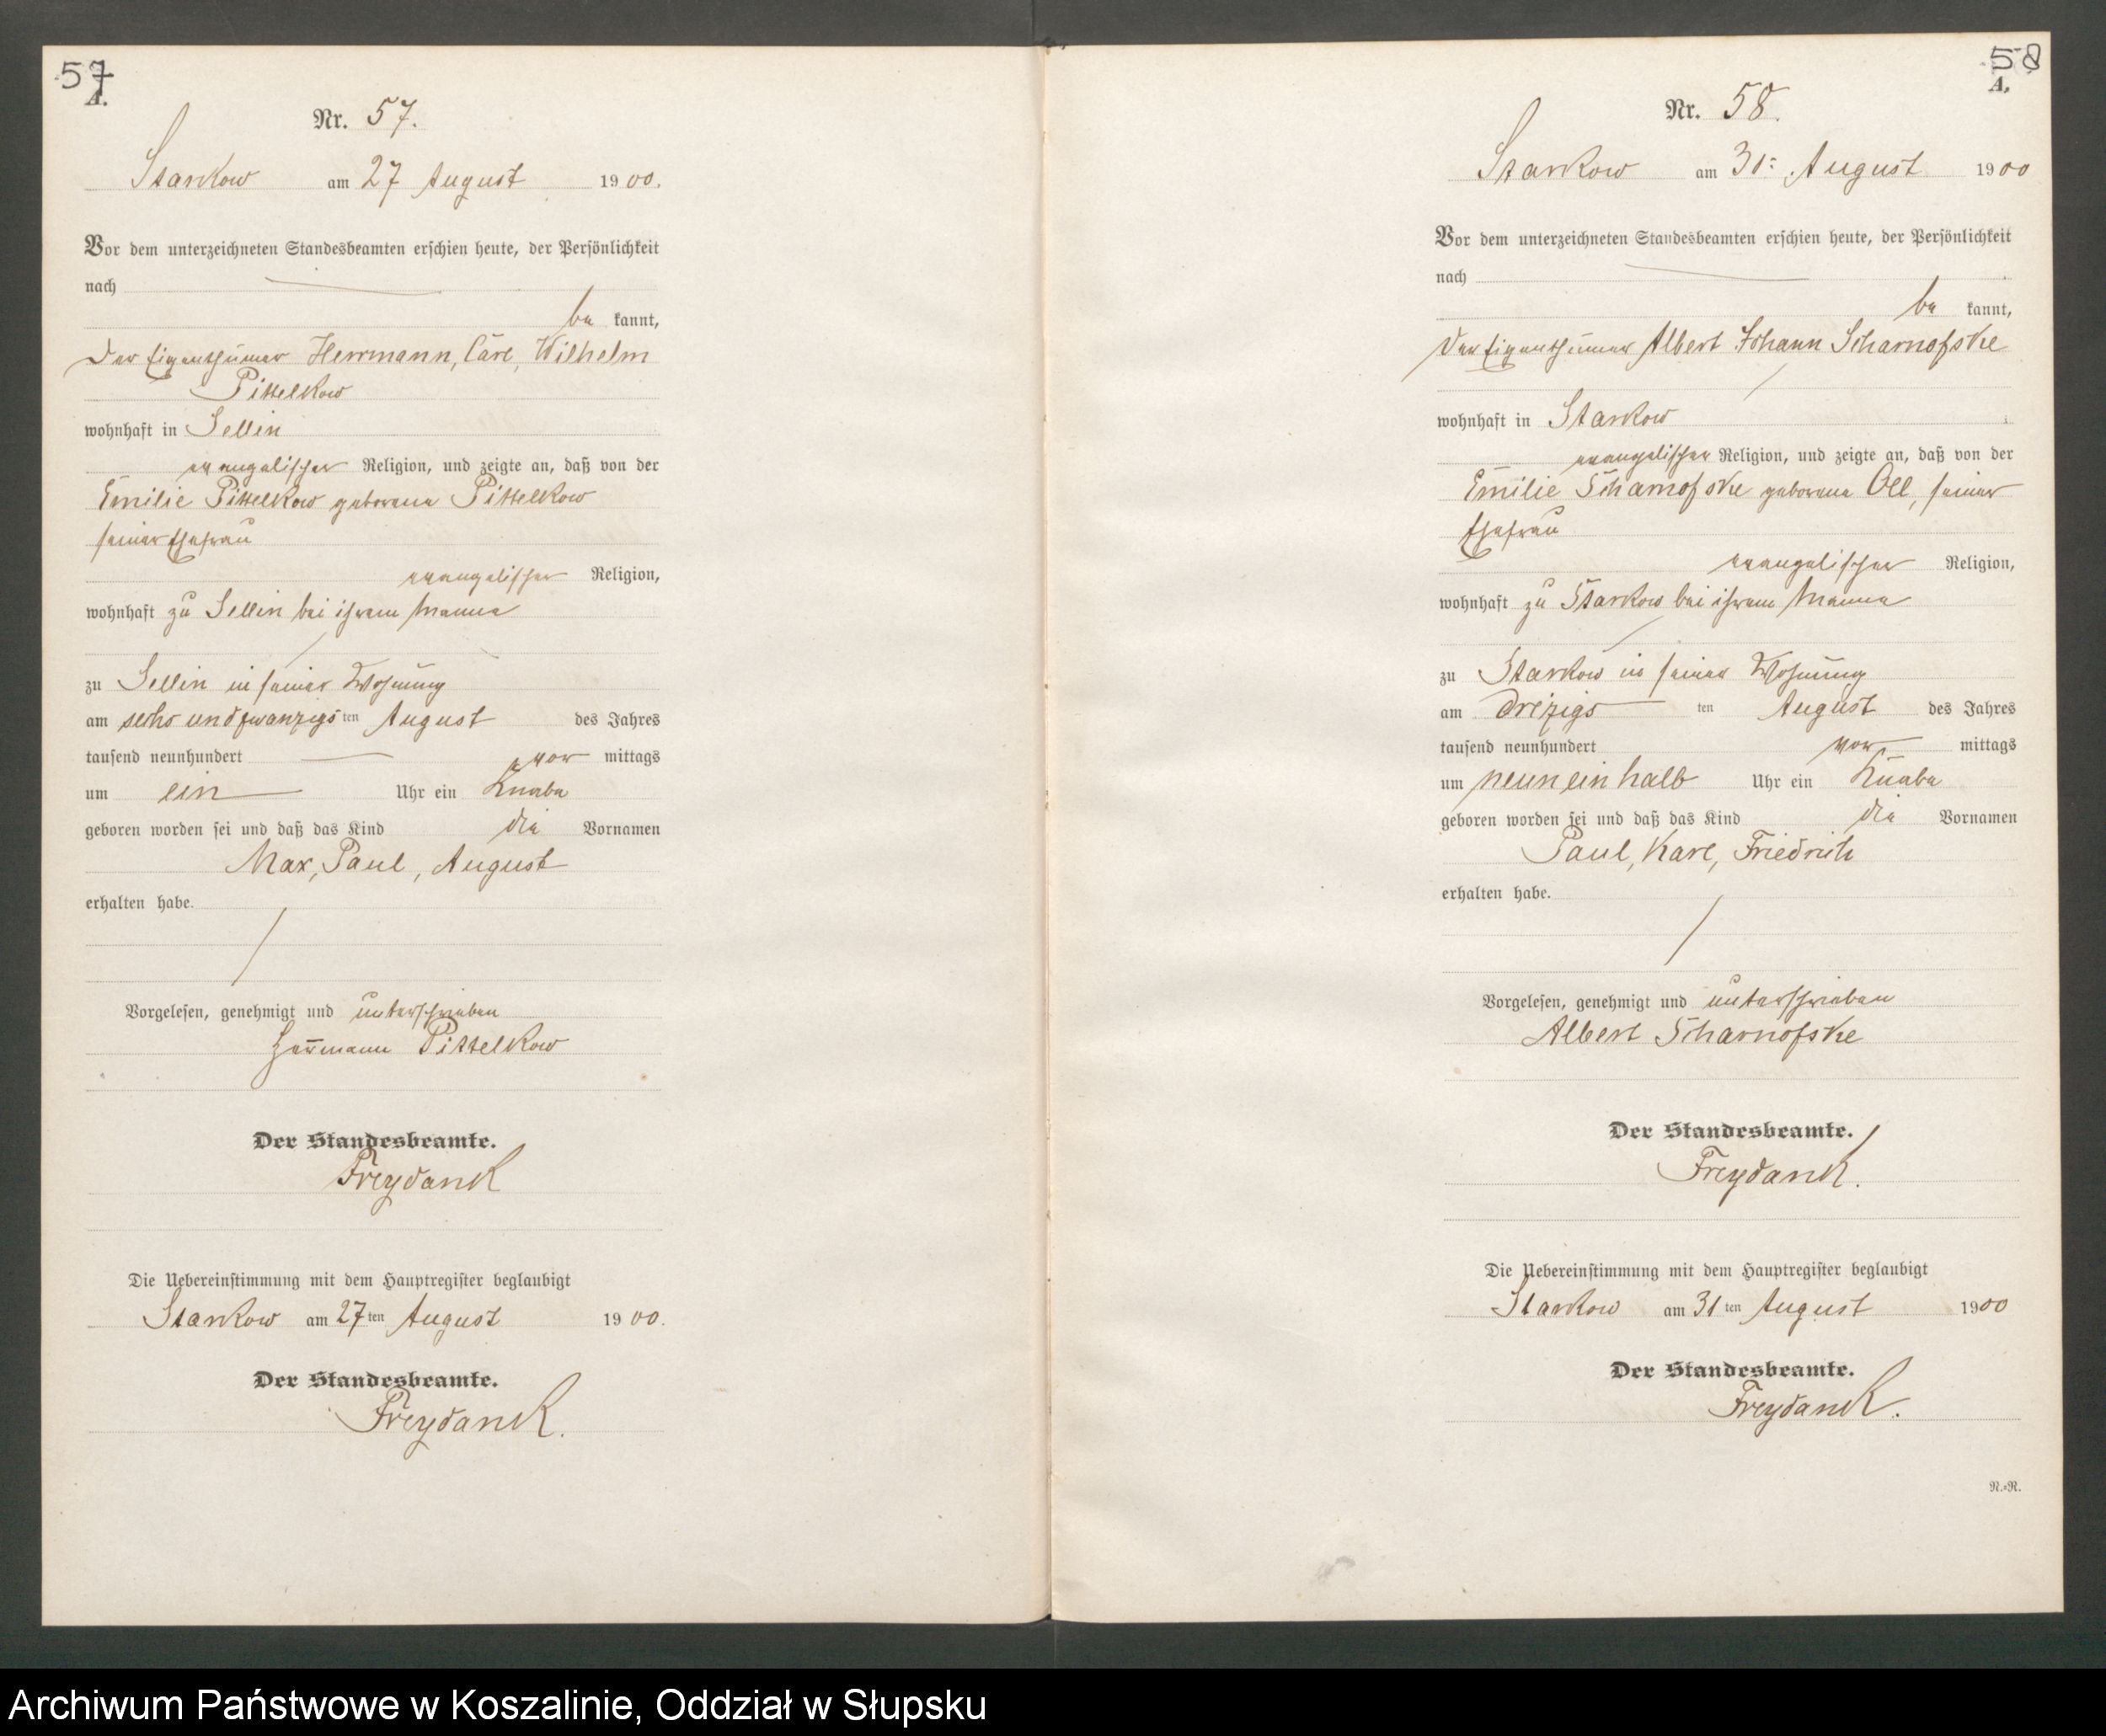 57
A.
Nr. 57.
Starkow am 27 August 1900.
Vor dem unterzeichneten Standesbeamten erschien heute, der Persönlichkeit
nach
be kannt,
der Eigenthümer Herrmann, Carl, Wilhelm
Pittelkow
wohnhaft in Sellin
evangelischer Religion, und zeigte an, daß von der
Emilie Pittelkow geborene Pittelkow
seiner Ehefrau
evangelischer Religion,
wohnhaft zu Sellin bei ihrem Manne
zu Sellin in seiner Wohnung
am sechs und zwanzigs ten August des Jahres
tausend neunhundert vor mittags
um ein Uhr ein Knabe
geboren worden sei und daß das Kind die Vornamen
Max, Paul, August
erhalten habe.
Vorgelesen, genehmigt und unterschrieben
Herrmann Pittelkow
Der Standesbeamte.
Freydank
Die Uebereinstimmung mit dem Hauptregister beglaubigt
Starkow am 27ten August 1900.
Der Standesbeamte.
Freydank.
58
A.
Nr. 58.
Starkow am 31. August 1900
Vor dem unterzeichneten Standesbeamten erschien heute, der Persönlichkeit
nach
be kannt,
der Eigenthümer Albert Johann Scharnofske
wohnhaft in Starkow
evangelischer Religion, und zeigte an, daß von der
Emilie Scharnofske geborene Oll, seiner
Ehefrau
evangelischer Religion,
wohnhaft zu Starkow bei ihrem Manne
zu Starkow in seiner Wohnung
am dreizigs ten August des Jahres
tausend neunhundert vor mittags
um neun ein halb Uhr ein Knabe
geboren worden sei und daß das Kind die Vornamen
Paul, Karl, Friedrich
erhalten habe.
Vorgelesen, genehmigt und unterschrieben
Albert Scharnofske
Der Standesbeamte.
Freydank.
Die Uebereinstimmung mit dem Hauptregister beglaubigt
Starkow am 31 ten August 1900
Der Standesbeamte.
Freydank.
N.=R.
Archiwum Państwowe w Koszalinie, Oddział w Słupsku